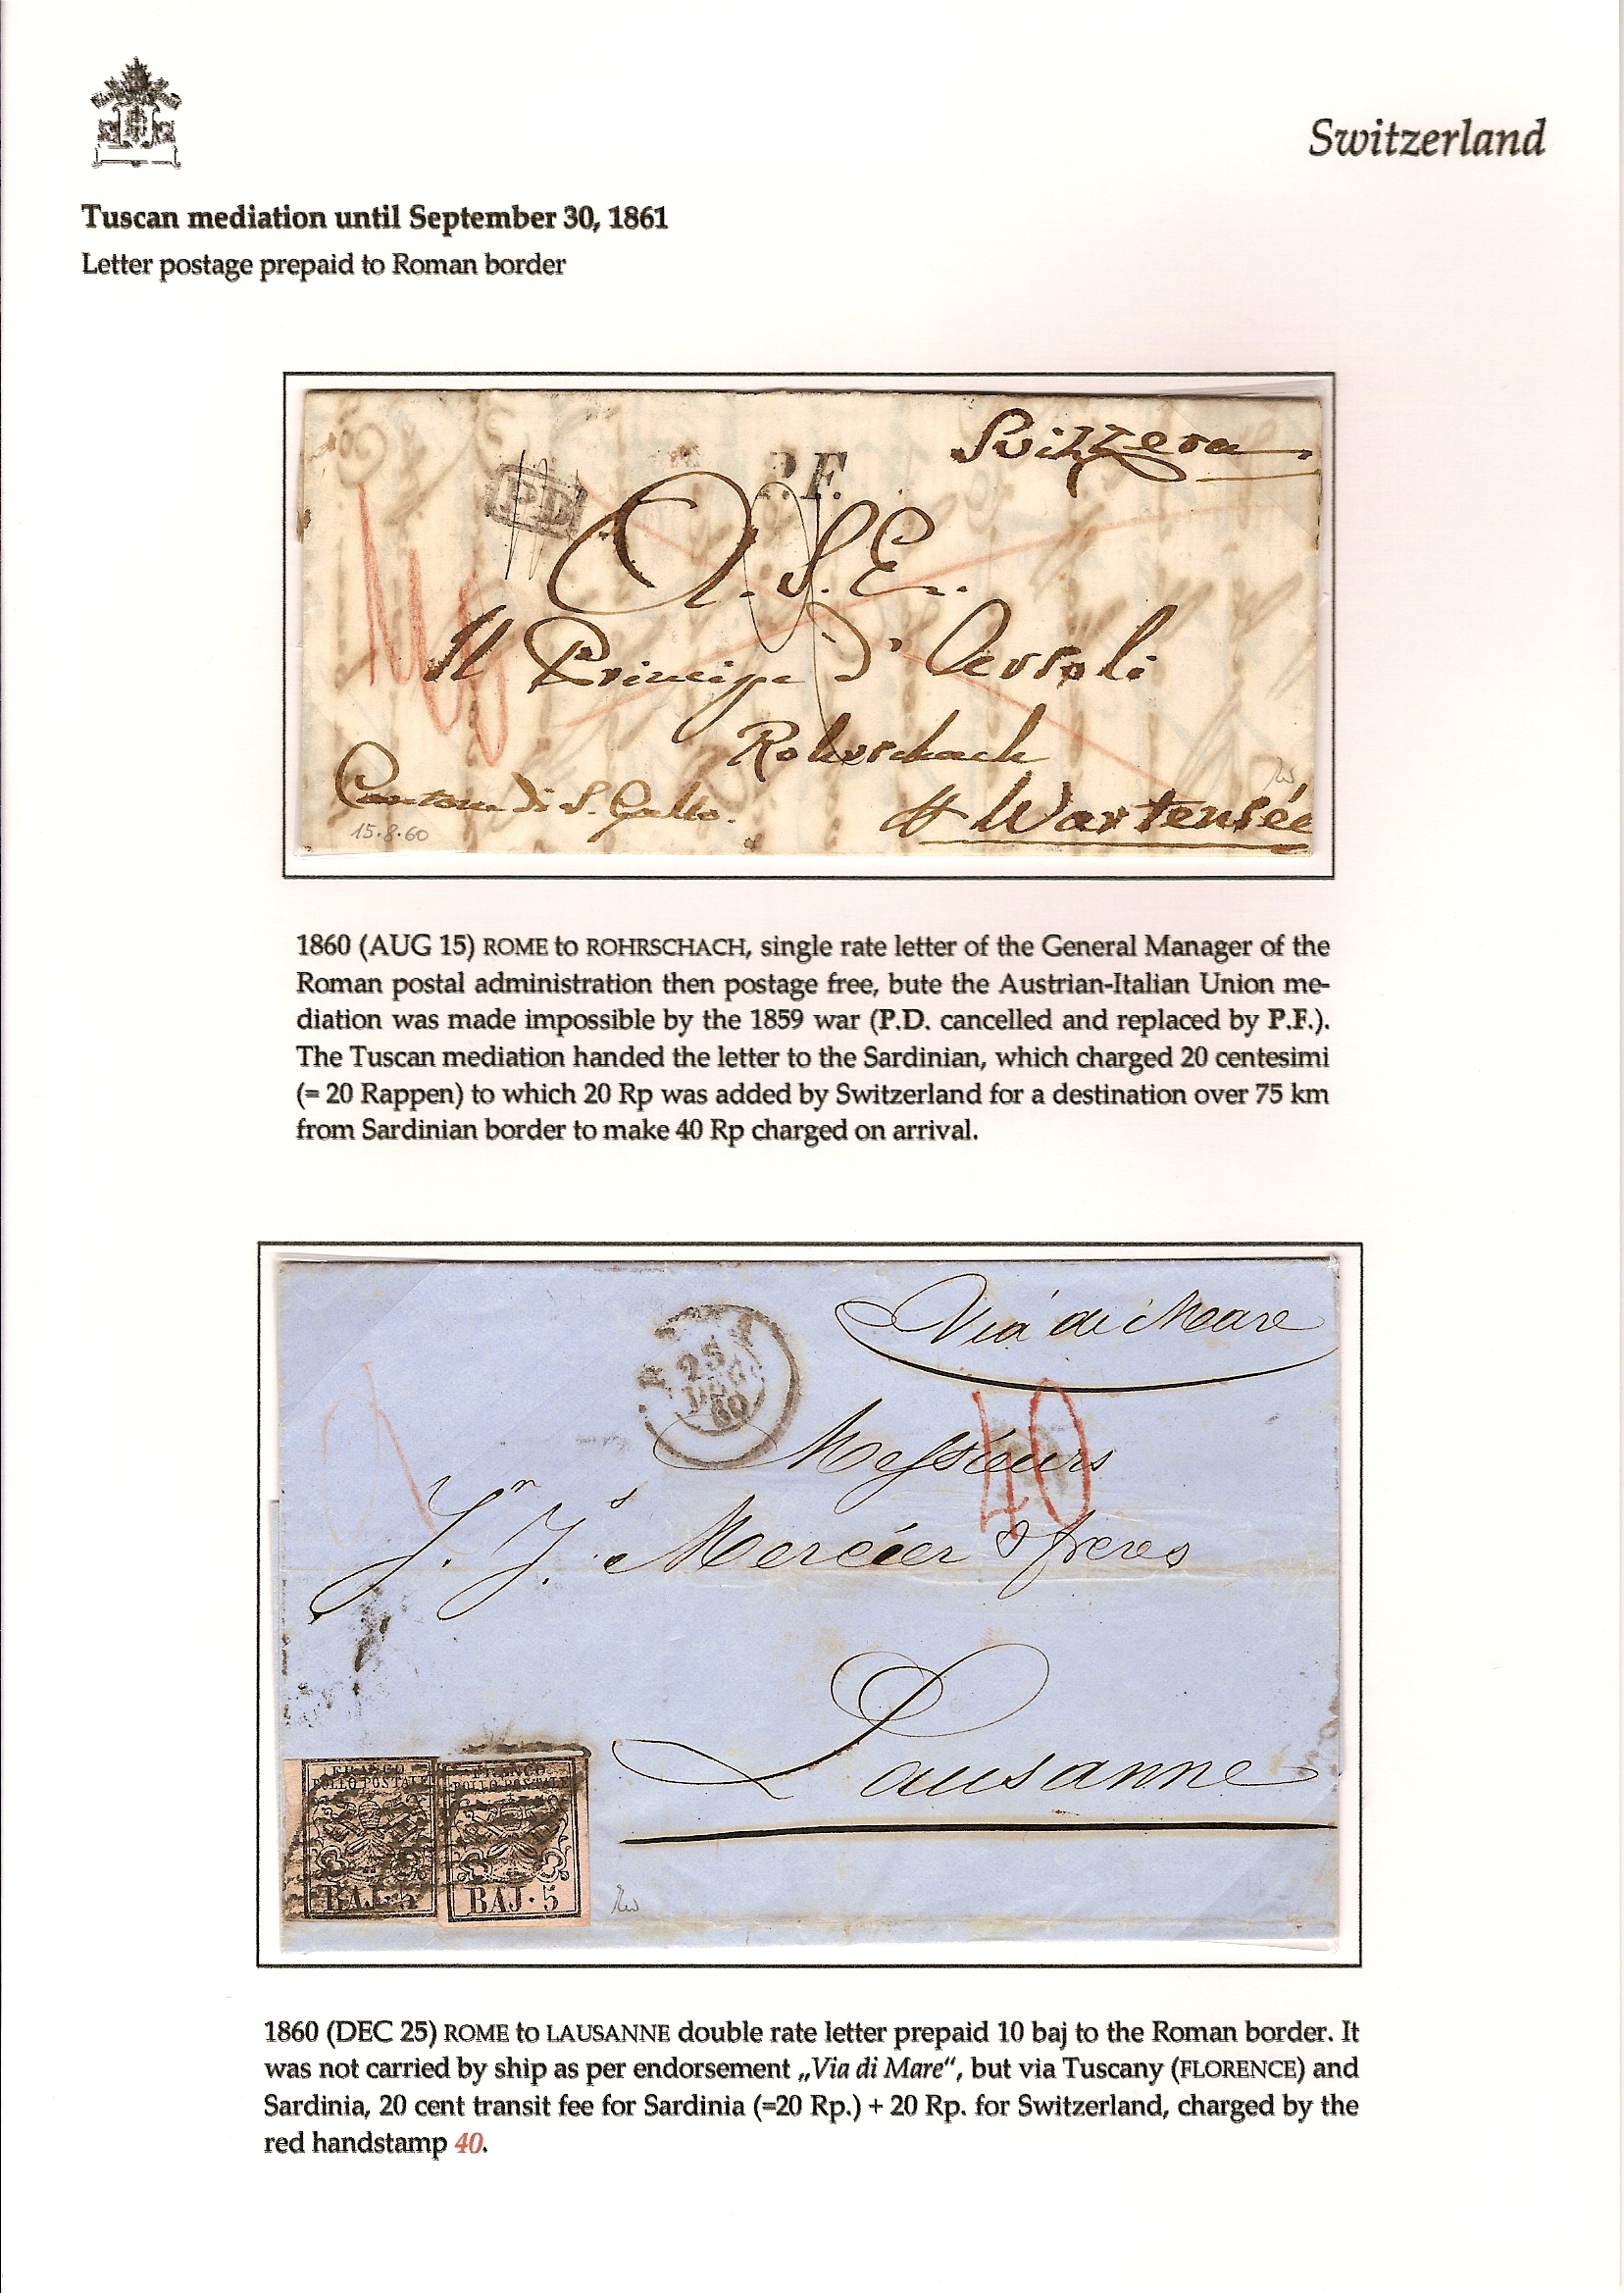 Switzerland
Tuscan mediation until September 30, 1861
Letter postage prepaid to Roman border
Svizzera
P.F.
PD
A. S. E.
Il Principe d'Arsoli
Rohrschach
Cantone di S. Gallo.
Wartensée
15.8.60
1860 (AUG 15) ROME to ROHRSCHACH, single rate letter of the General Manager of the
Roman postal administration then postage free, bute the Austrian-Italian Union me-
diation was made impossible by the 1859 war (P.D. cancelled and replaced by P.F.).
The Tuscan mediation handed the letter to the Sardinian, which charged 20 centesimi
(= 20 Rappen) to which 20 Rp was added by Switzerland for a destination over 75 km
from Sardinian border to make 40 Rp charged on arrival.
Via di Mare
25
DEC
60
40
Messieurs
J. J. Mercier & freres
Lausanne
FRANCO
BOLLO POSTALE
BAJ·5
FRANCO
BOLLO POSTALE
BAJ·5
1860 (DEC 25) ROME to LAUSANNE double rate letter prepaid 10 baj to the Roman border. It
was not carried by ship as per endorsement „Via di Mare“, but via Tuscany (FLORENCE) and
Sardinia, 20 cent transit fee for Sardinia (=20 Rp.) + 20 Rp. for Switzerland, charged by the
red handstamp 40.